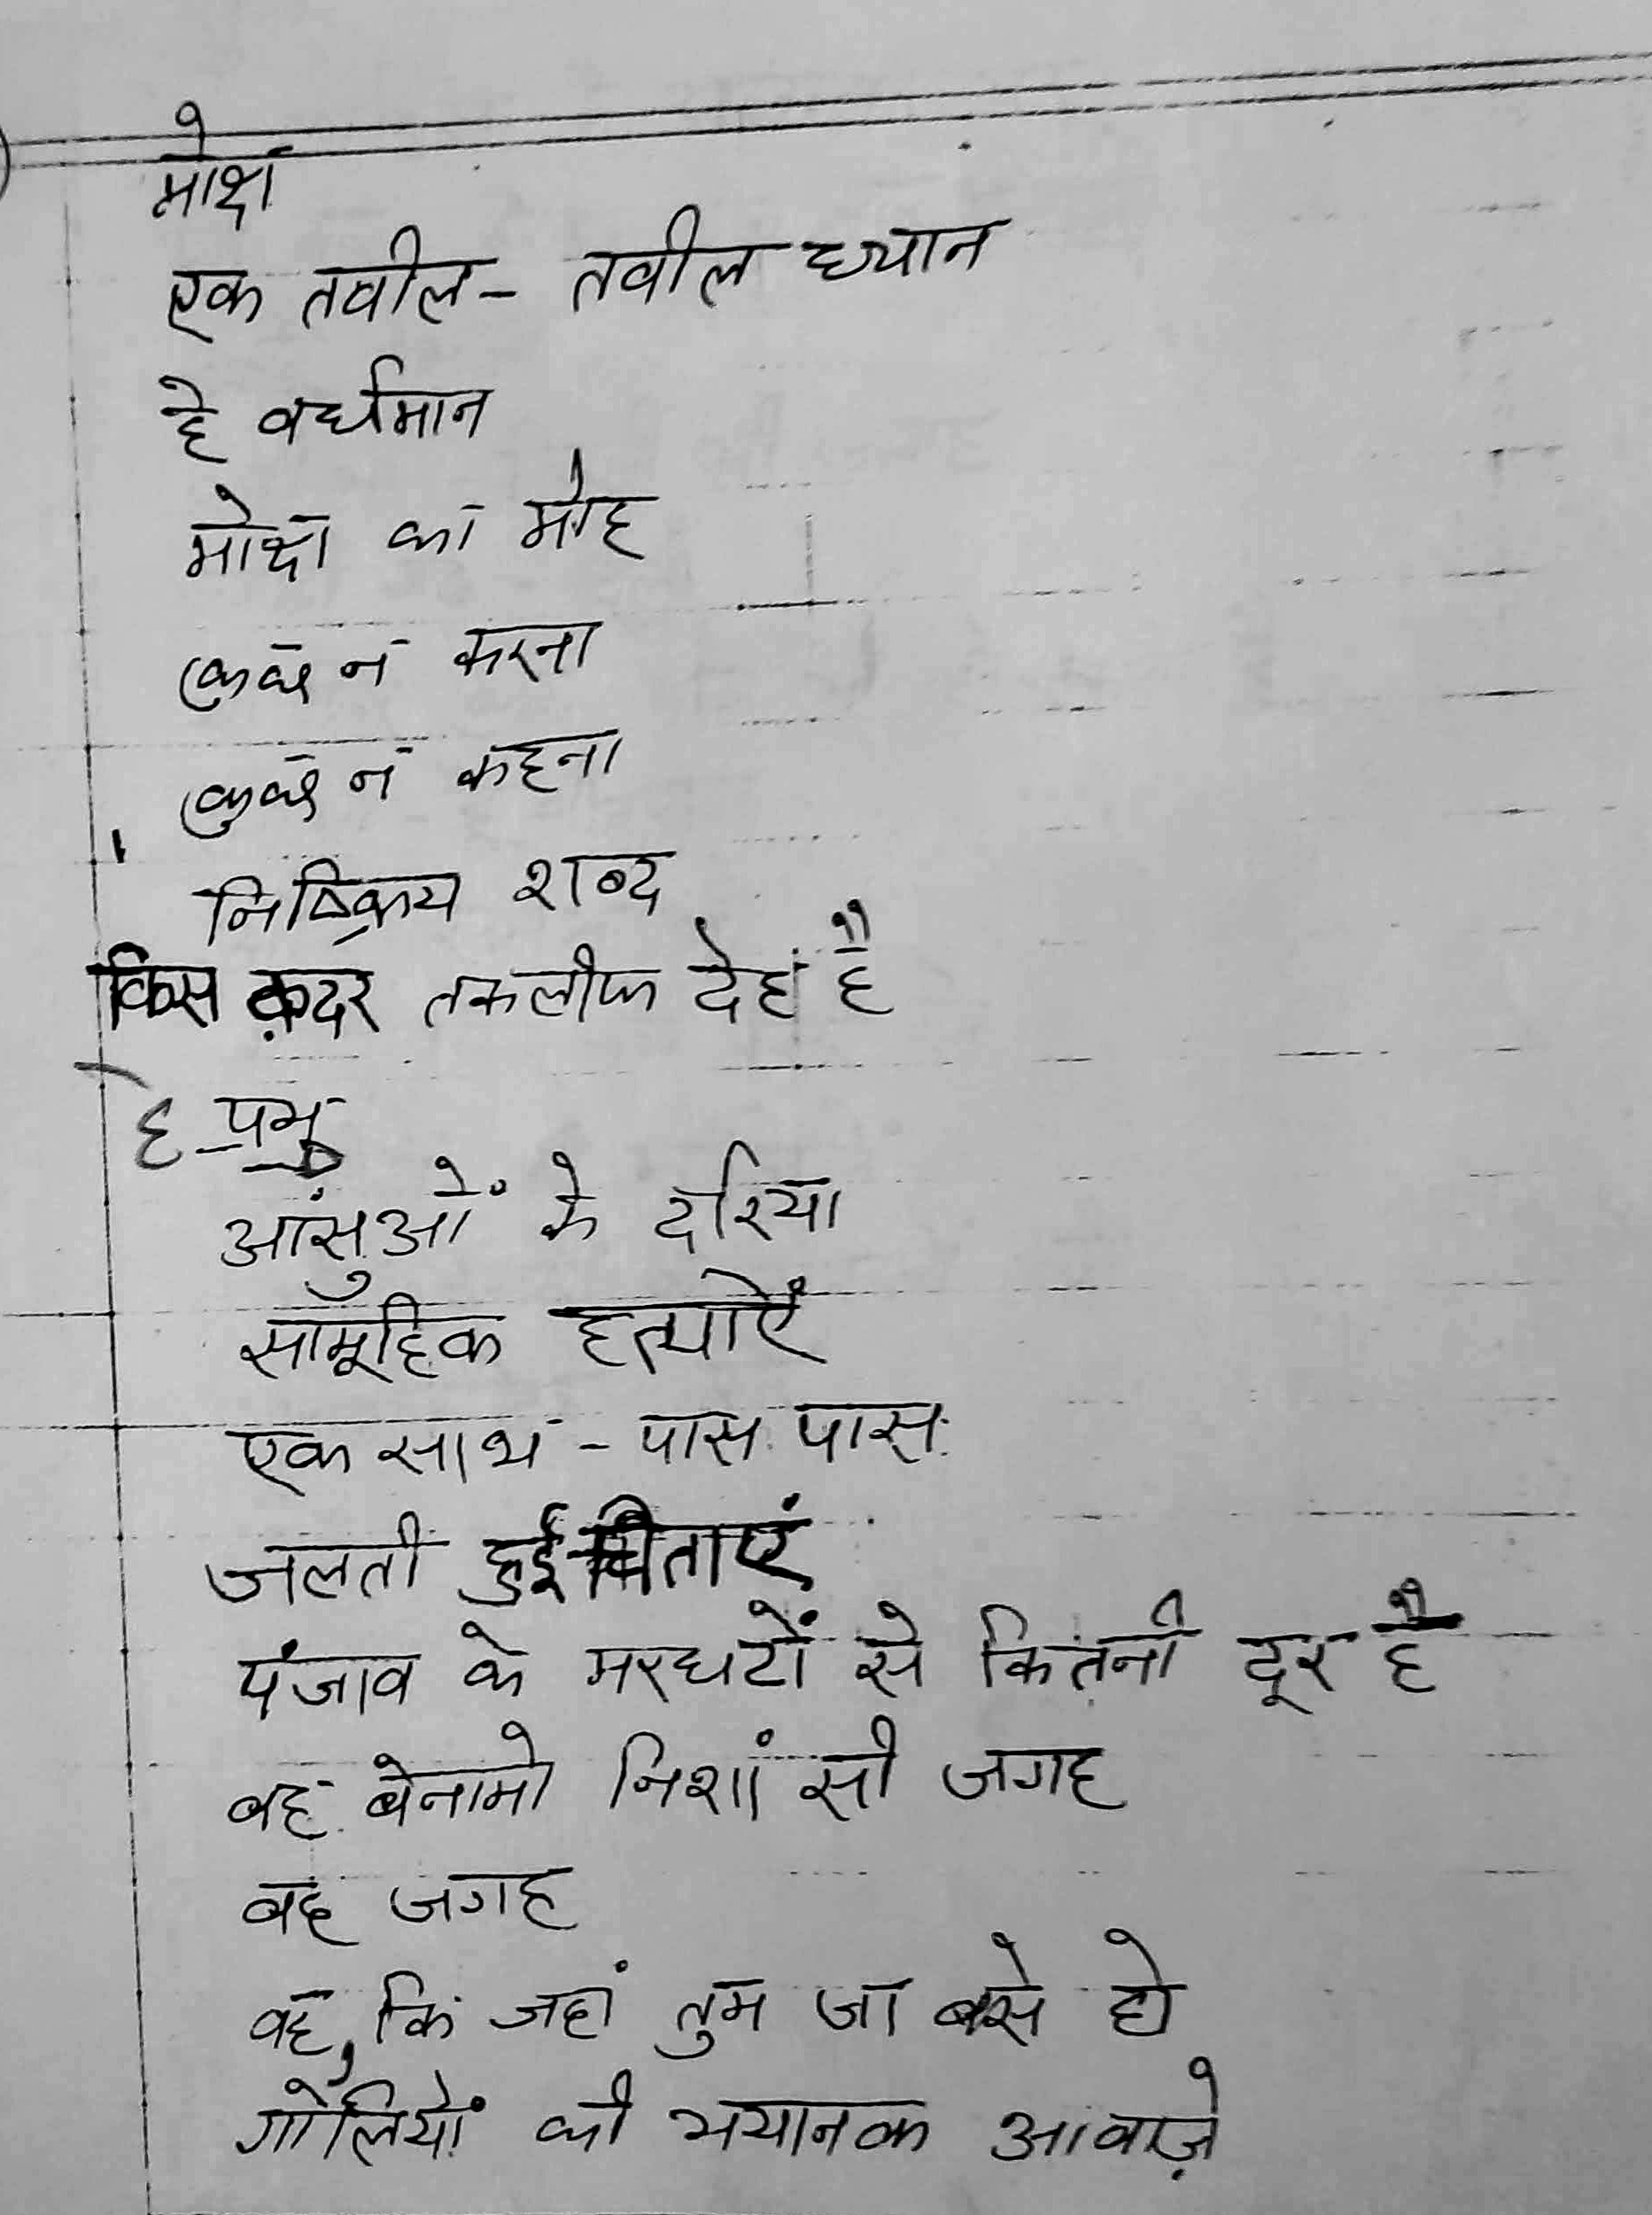 मोक्ष
एक तवील- तवील ध्यान
हे वर्धमान
मोक्ष का मोह
कुछ न करना
कुछ न कहना
निष्क्रिय शब्द
किस क़दर तकलीफ देह है
हे प्रभु
आंसुओं के दरिया
सामूहिक हत्याएँ
एक साथ - पास पास
जलती हुई चिताएं
पंजाब के मरघटों से कितनी दूर है
वह बेनामो निशां सी जगह
वह जगह
वह, कि जहां तुम जा बसे हो
गोलियों की भयानक आवाज़े